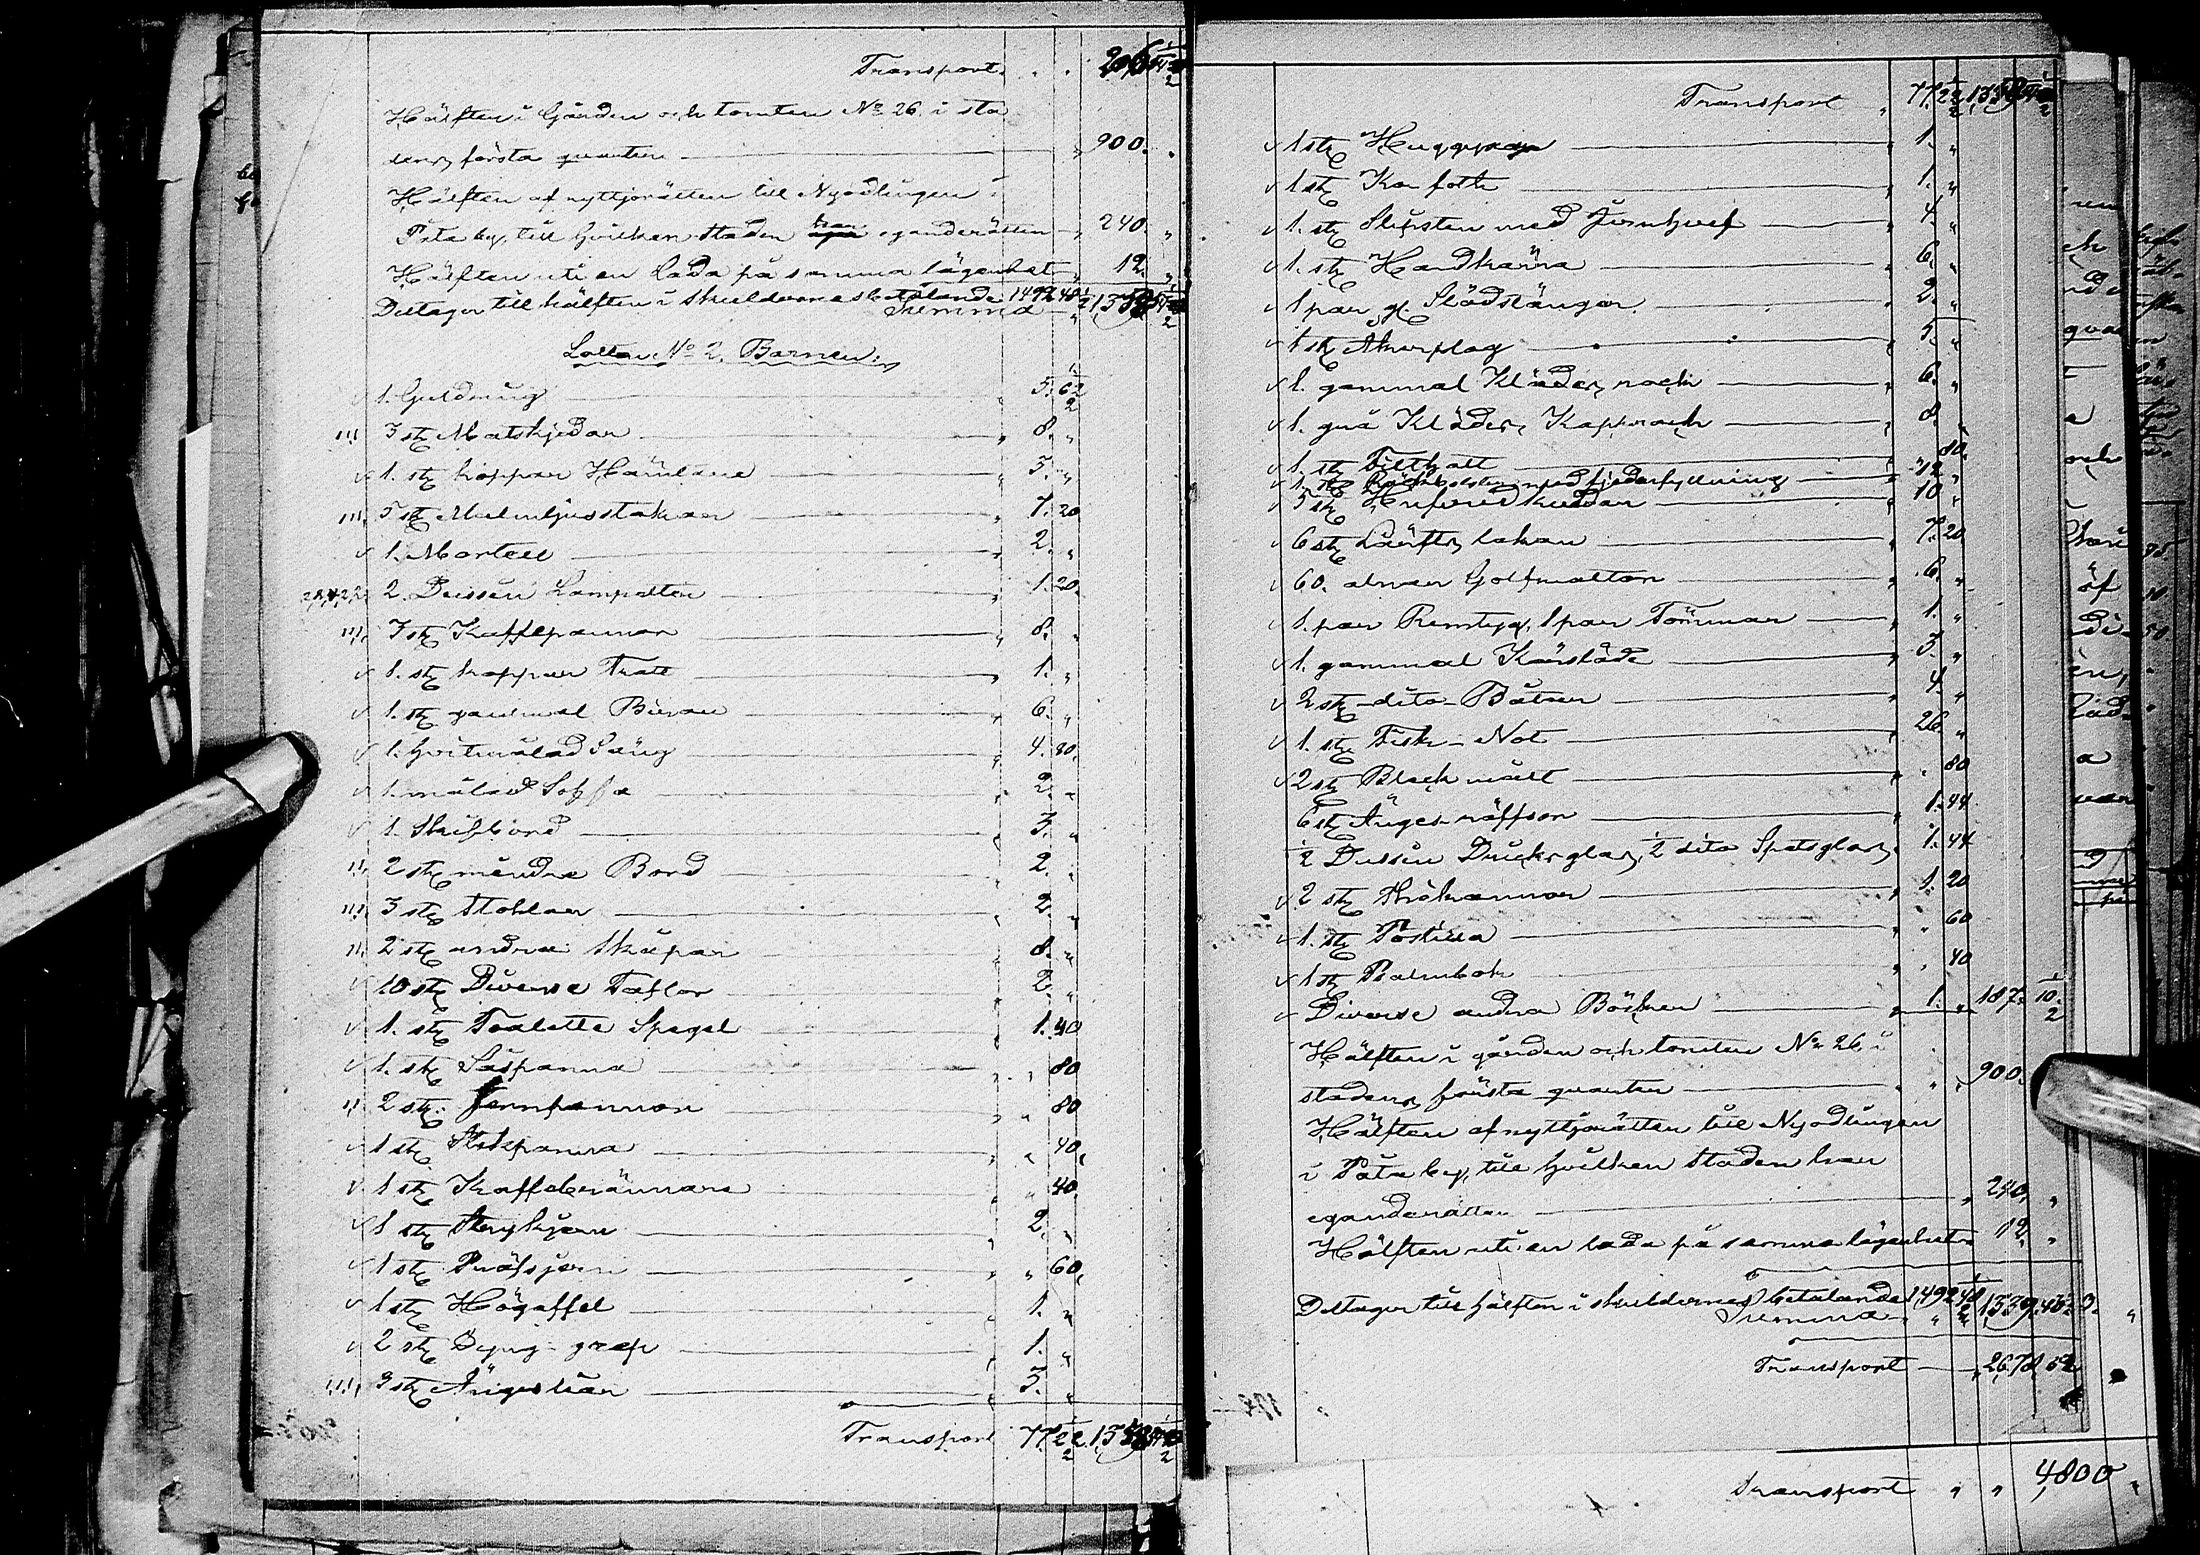 Transport
Hälften i Gården och tomten No 26 i sta
dens första quarter 900.
Hälften af nyttjorätten till Nyodlingen i
Påta by, till hvilken Staden har eganderätten 240.
Hälften uti en Lada på samma lägenhet 12.
Deltager till hälften i skuldernas betalande 1492
Summa
Lotten No 2. Barnen.
1. Guldring 5. 62 1/2
3 st Matskjedar 8.
1. st koppar
3 st Malmljusstakar 1. 20
1. Mortell 2.
2. Dussin 1. 20.
3 st Kaffepannor 8.
1. st koppar Tratt 1.
1. st gammal Bürau 6.
1. hvitmålad Säng 4. 80.
1. målad Soffa 2.
1. Skifbord 3.
2 st mindre Bord 2.
3 st Stohlar 2.
2 st andra Skåpar 8.
10 st Diverse Taflor 2.
1. st Toalette Spegel 1. 40
1. st Såspanna 80
2 st. Jernpannor 80
1 st Stekpanna 40.
1 st Kaffebrännare 40.
1 st Strykjern 2.
1 st 60.
1 st Högaffel 1.
2 st Dyng-grep 1.
3 st Ängesliar 3.
Transport 77. 22 1/2
Transport 77. 22 1/2
1 st 1.
1 st Kofot 1.
1. st Slipsten med 4.
1. st Handkärra 6.
1 par gl. Slädstänger 2.
1 st Åkerplog 5.
1. gammal Klädes rock 6.
1. grå Klädes Kapprock 8.
1. st Filthatt 80.
1. st med fjederfyllning 12
5 st Hufvudkuddar 10
6 st Lärfts lakan 7. 20
60. alnar Golfmattor 6.
1. par Remtyg, 1 par Tömmar 1.
1. gammal Körsläde 3.
2 st dito Båtar 4.
1. st Fisk-Not 26.
2 st Bleck mått 80
6 st Änges räffsor 1. 44
1/2 Dussin Dricksglas, 1/2 dito Spetsglas 1. 44
2 st 1. 20
1. st Postilla 60
1 st Psalmbok 40
Diverse andra Böcker 1. 187. 10 1/2
Hälften i gården och tomten No 26. i
stadens första quarter 900.
Hälften af nyttjorätten till Nyodlingen
i Påta by, till hvilken Staden har
eganderätten 240.
Hälften uti en lada på samma lägenhet 12.
Deltager till hälften i skuldernas betalande 1492
Summa 1339.
Transport 2678.
Transport 4,800